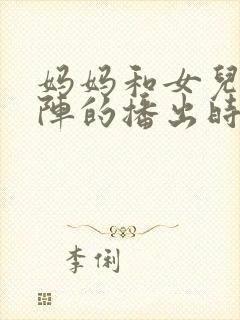 妈妈和女兒
陣的播出時
李俐